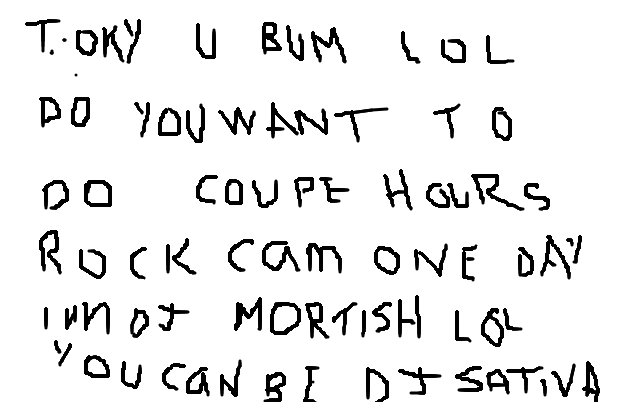 T.OKY U BUM LOL
DO YOU WANT TO
DO COUPE HOURS
ROCK CAM ONE DAY
IM DJ MORTISH LOL
YOU CAN BE DJ SATIVA